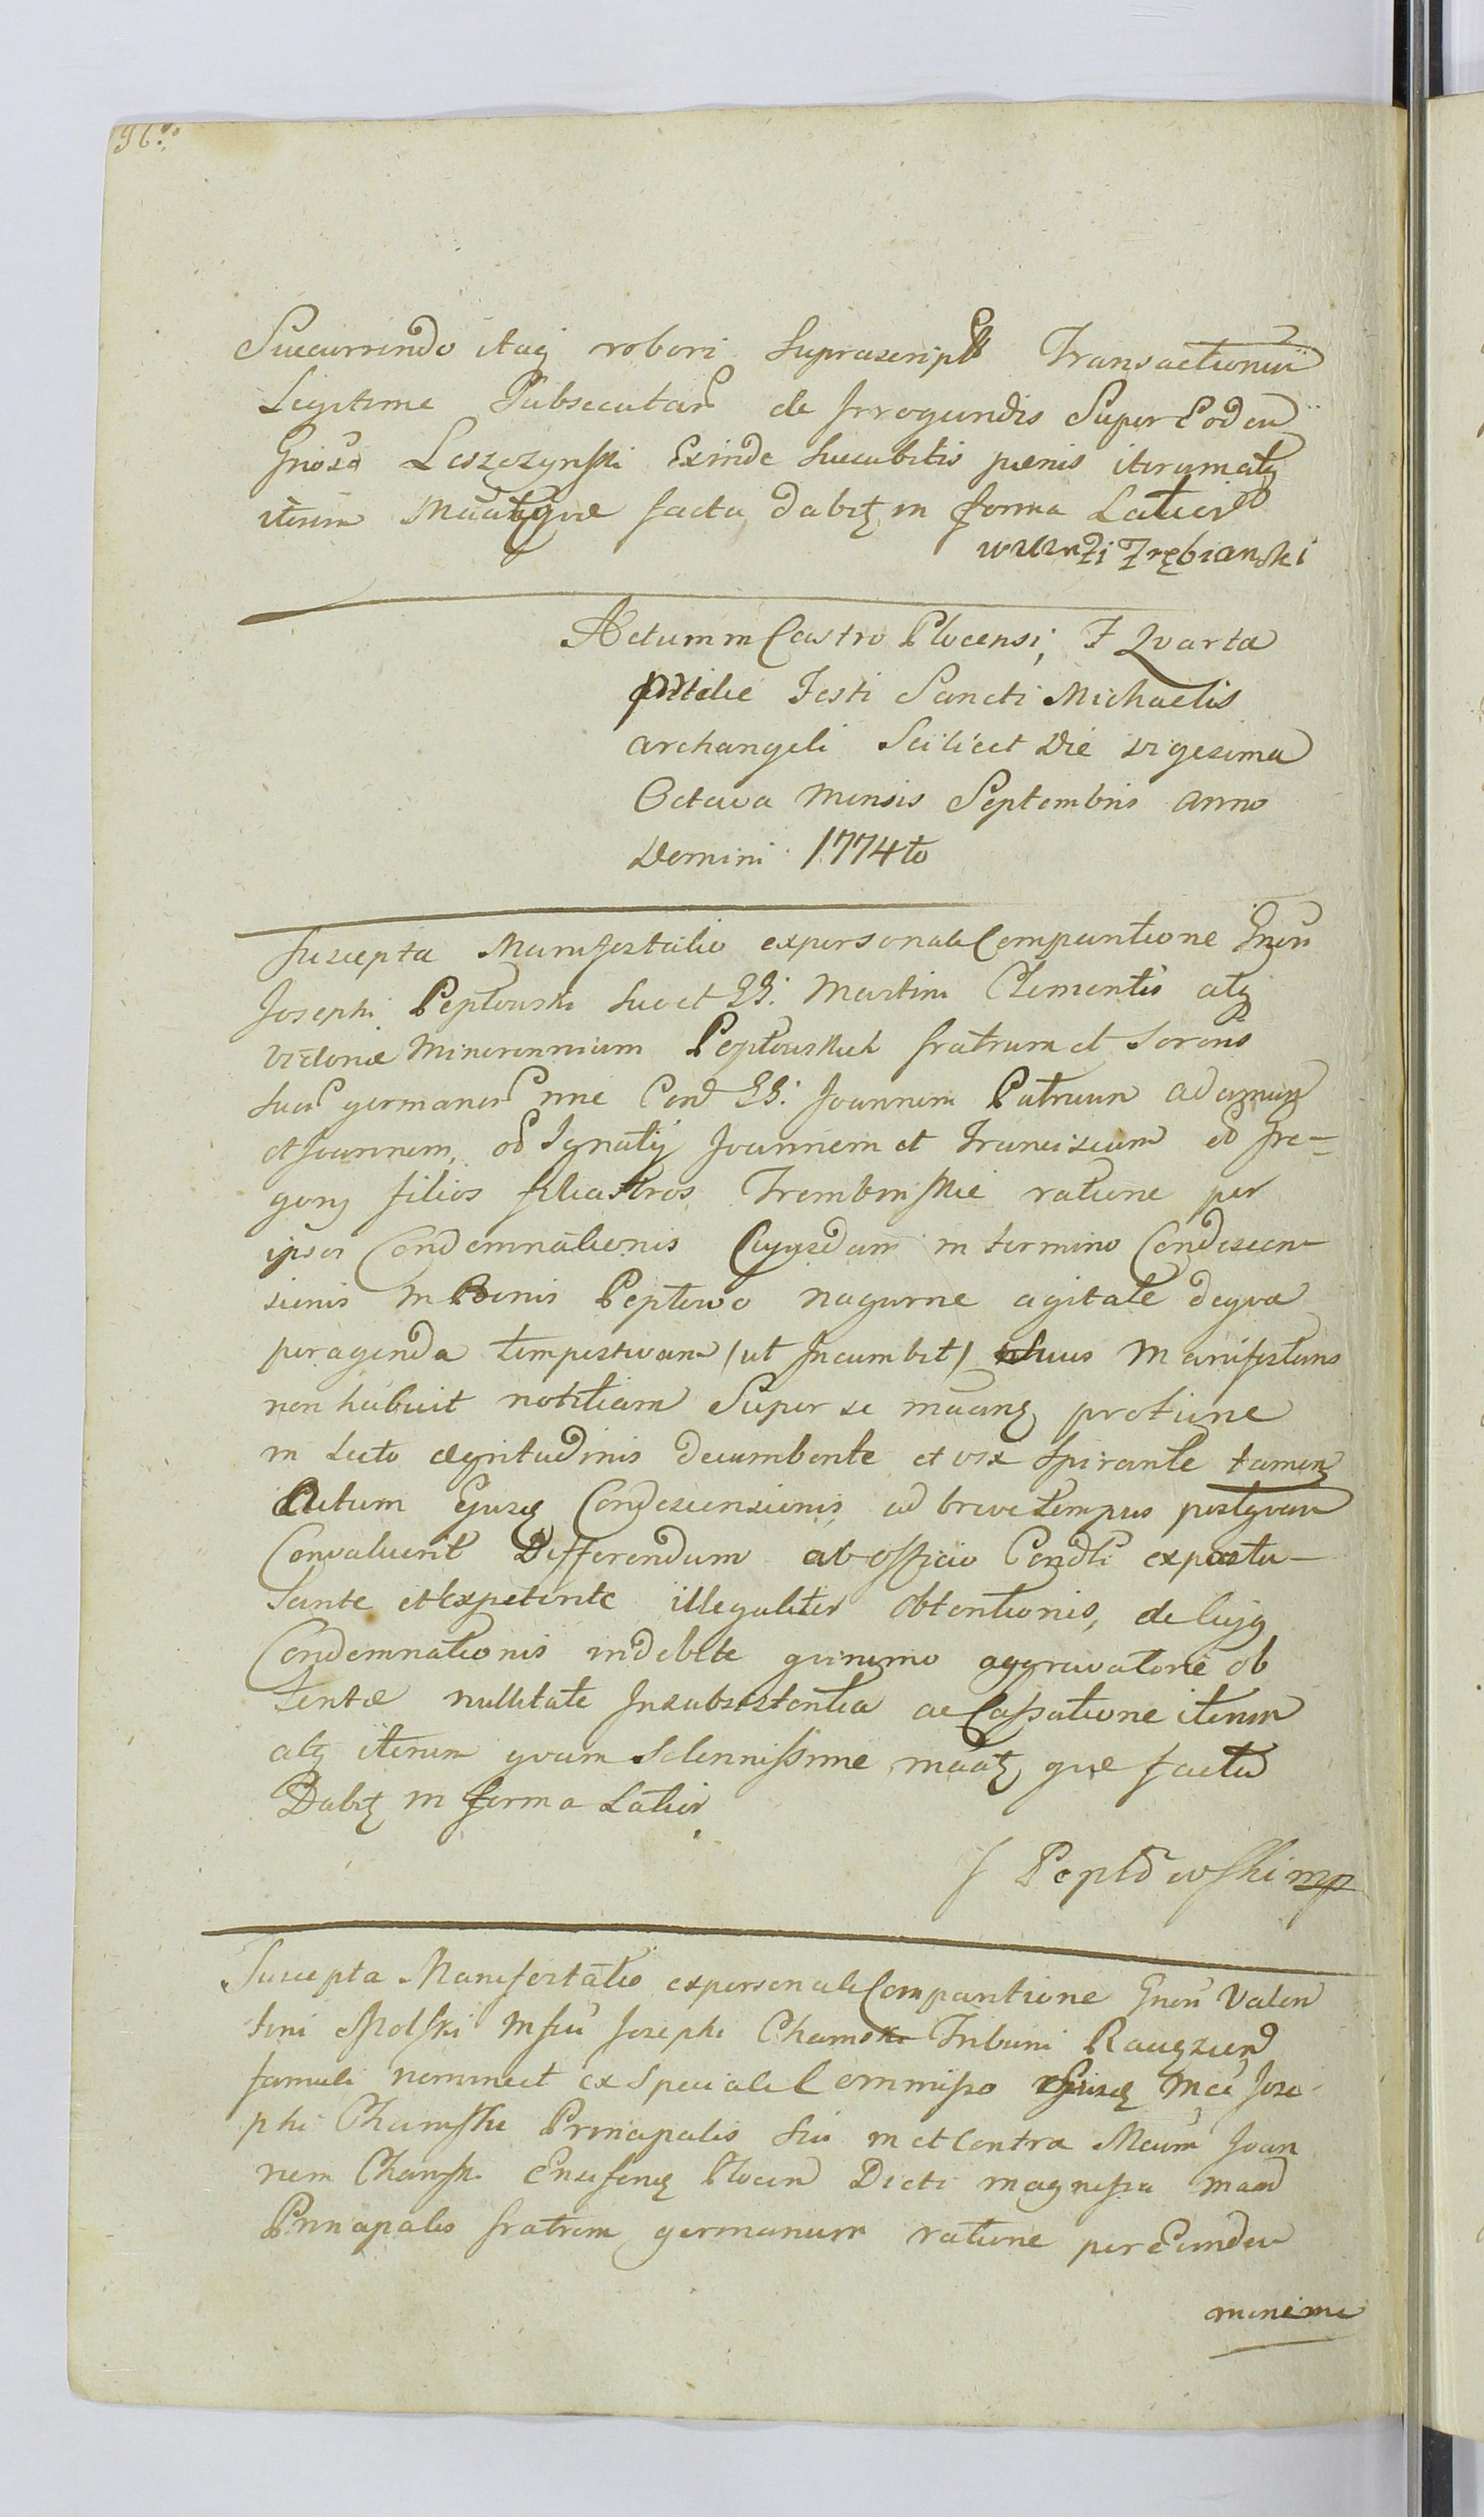 96.
Succurrendo itaq robori Suprascript Transactionu
Legitime Subsecutar de Irrogandis Super Eodem
Gnoso Leszczynski Exinde Succubitis pœnis iterumatq
iterum Mâatqvæ facta dabit in forma Latiori
Trębianski
Actum in Castro Plocensi, F Qvarta
pridie Festi Sancti Michaelis
Archangeli Scilicet Die vigesima
Octava Mensis Septembris Anno
Domini 1774to
Suscepta Manifestatio expersonali Comparitione Gnen
Josephi Peptowski suo et GG: Martini Clementis atq
Victoriæ Minorennium Peptowskich fratrum et Sororis
suor germanor nne Con GG: Joannem Patruum Adamum
et Joannem, ol Ignatij Joannem et Franciscum ol Gre-
gorij filios filiastros Trembinskie ratione per
ipsos Condemnationis Cujusdam in termino Condescen-
sionis in Bonis Peptowo nagorne agitatæ deqva
peragenda tempestivam (ut Incumbit) Manifestans
non habuit notitiam Super se mâanq protunc
in Lecto ægritudinis decumbente et vix Spirante tamenq
Actum Ejusq Condescensionis ad breve tempus postqvam
Convaluerit Differendum ab officio Condli expostu-
lante et Expetente illegaliter obtentionis, de Cujq
Condemnationis indebite qvinimo aggravatorie ob
tentæ nullitate Insubsistentia ac Cassatione iterum
atq iterum qvam Solennissime mâatq qvæ facta
Dabit in forma Latiori
J Peptowski mp
Suscepta Manifestatio expersonali Comparitione Gnen Valen
tini Mfici Josephi Chamski Tribuni Raciązien
famuli nomine et ex Speciali Commisso Ejusq Mci Jose
phi Chamski Principalis Sui in et Contra Mcum Joan
nem Chamski Ensiferuq Plocen Dicti magnifici
Principalis fratrem germanum ratione per Eundem
minime